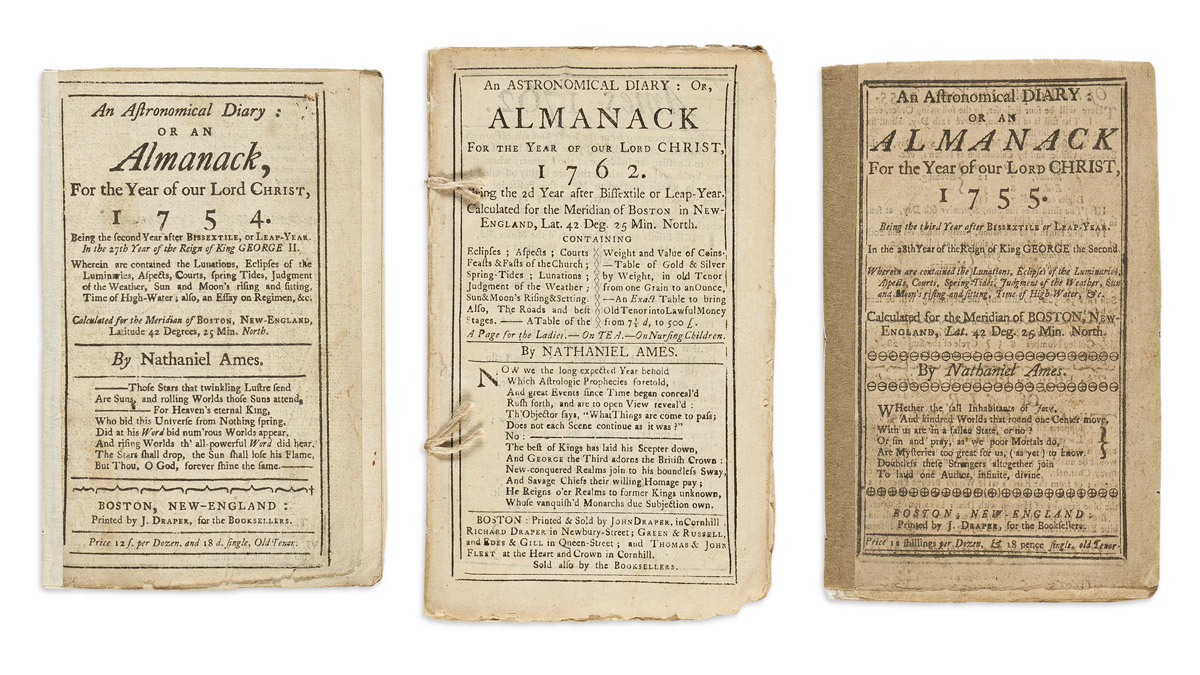 An Aſtronomical Diary:
OR AN
Almanack,
For the Year of our Lord CHRIST,
1754.
Being the ſecond Year after BISSEXTILE, or LEAP-YEAR.
In the 27th Year of the Reign of King GEORGE II.
Wherein are contained the Lunations, Eclipſes of the
Luminaries, Aſpects, Courts, ſpring Tides, Judgment
of the Weather, Sun and Moon's riſing and ſitting,
Time of High-Water; alſo, an Eſſay on Regimen, &c.
Calculated for the Meridian of BOSTON, NEW-ENGLAND,
Latitude 42 Degrees, 25 Min. North.
By Nathaniel Ames.
——Thoſe Stars that twinkling Luſtre ſend
Are Suns, and rolling Worlds thoſe Suns attend,
——For Heaven's eternal King,
Who bid this Univerſe from Nothing ſpring,
Did at his Word bid num'rous Worlds appear,
And riſing Worlds th' all-powerful Word did hear.
The Stars ſhall drop, the Sun ſhall loſe his Flame,
But Thou, O God, forever ſhine the ſame.——
BOSTON, NEW-ENGLAND:
Printed by J. DRAPER, for the BOOKSELLERS.
Price 12 ſ. per Dozen, and 18 d. ſingle, Old Tenor.
An ASTRONOMICAL DIARY: OR,
ALMANACK
FOR THE YEAR OF OUR LORD CHRIST,
1762.
Being the 2d Year after Biſſextile or Leap-Year.
Calculated for the Meridian of BOSTON in NEW-
ENGLAND, Lat. 42 Deg. 25 Min. North.
CONTAINING
Eclipſes; Aſpects; Courts
Feaſts & Faſts of the Church;
Spring-Tides; Lunations;
Judgment of the Weather;
Sun & Moon's Riſing & Setting.
Alſo, The Roads and beſt
Stages.—A Table of the
Weight and Value of Coins.
—Table of Gold & Silver
by Weight, in old Tenor
from one Grain to an Ounce,
—An Exact Table to bring
Old Tenor into Lawful Money
from 7½ d, to 500 £.
A Page for the Ladies.—On TEA.—On Nurſing Children.
By NATHANIEL AMES.
NOW we the long expected Year behold
Which Aſtrologic Prophecies foretold,
And great Events ſince Time began conceal'd
Ruſh forth, and are to open View reveal'd:
Th' Objector ſays, "What Things are come to paſs;
Does not each Scene continue as it was?"
No:——
The beſt of Kings has laid his Scepter down,
And GEORGE the Third adorns the Britiſh Crown:
New-conquered Realms join to his boundleſs Sway,
And Savage Chiefs their willing Homage pay;
He Reigns o'er Realms to former Kings unknown,
Whoſe vanquiſh'd Monarchs due Subjection own.
BOSTON: Printed & Sold by JOHN DRAPER, in Cornhill
RICHARD DRAPER in Newbury-Street; GREEN & RUSSELL,
and EDES & GILL in Queen-Street; and THOMAS & JOHN
FLEET at the Heart and Crown in Cornhill.
Sold alſo by the BOOKSELLERS.
An Aſtronomical DIARY:
OR AN
ALMANACK
For the Year of our LORD CHRIST,
1755.
Being the third Year after BISSEXTILE or LEAP-YEAR.
In the 28th Year of the Reign of King GEORGE the Second
Wherein are contained the Lunations, Eclipſes of the Luminaries,
Aſpects, Courts, Spring-Tides, Judgment of the Weather, Sun
and Moon's riſing and ſitting, Time of High-Water, &c.
Calculated for the Meridian of BOSTON, NEW-
ENGLAND, Lat. 42 Deg. 25 Min. North.
By Nathaniel Ames.
WHether the tall Inhabitants of Jove,
And kindred Worlds that round one Center move,
With us are in a fallen State, or no?
Or ſin and pray, as we poor Mortals do,
Are Myſteries too great for us, (as yet) to know.
Doubtleſs theſe Strangers altogether join
To laud one Author, infinite, divine.
BOSTON, NEW-ENGLAND:
Printed by J. DRAPER, for the Bookſellers.
Price 12 ſhillings per Dozen, & 18 pence ſingle, old Tenor